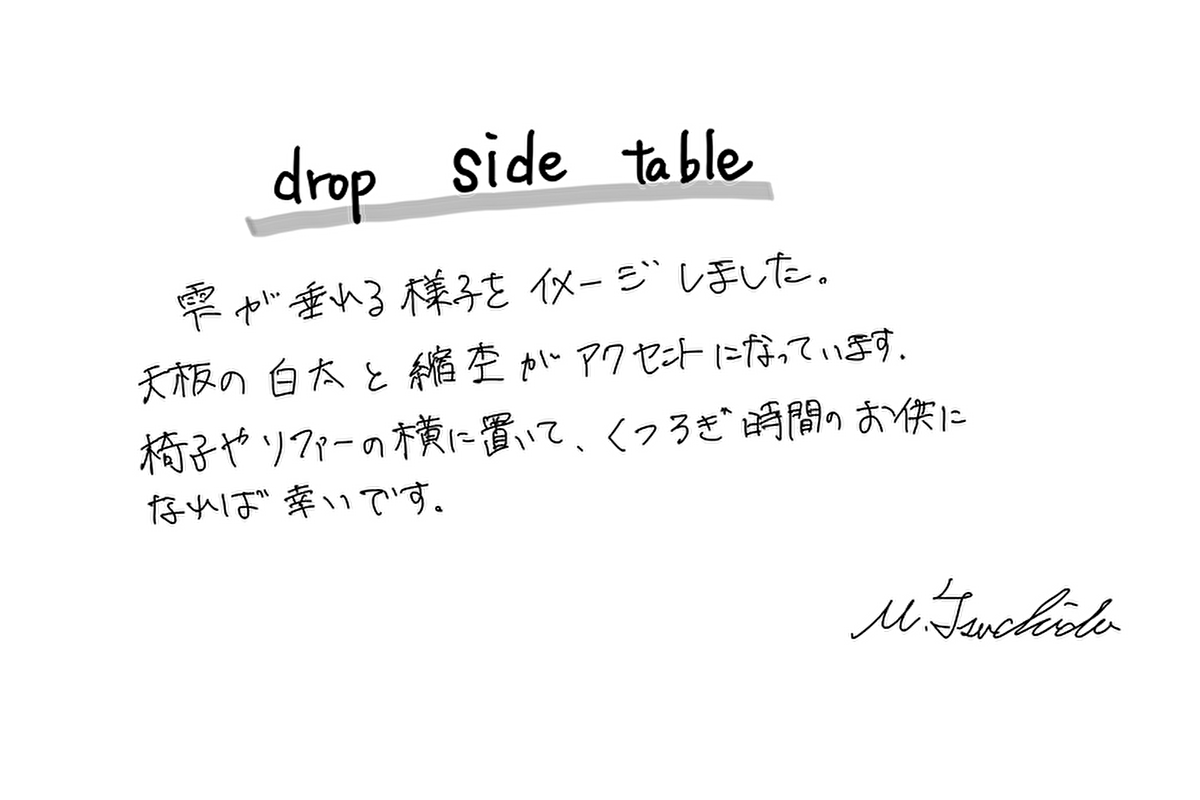 drop side table
雫が垂れる様子をイメージしました。
天板の白太と縮杢がアクセントになっています.
椅子やソファーの横に置いて、くつろぎ時間のお供に
なれば幸いです。
M.Tsuchida